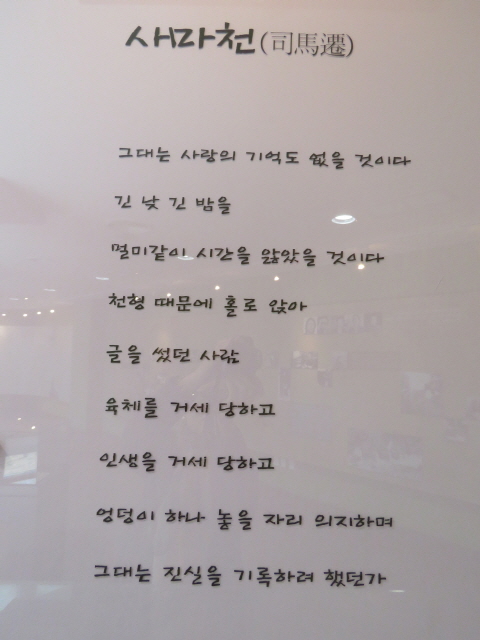 사마천(司馬遷)
그대는 사랑의 기억도 없을 것이다
긴 낮 긴 밤을
멀미같이 시간을 앓았을 것이다
천형 때문에 홀로 앉아
글을 썼던 사람
육체를 거세 당하고
인생을 거세 당하고
엉덩이 하나 놓을 자리 의지하며
그대는 진실을 기록하려 했던가